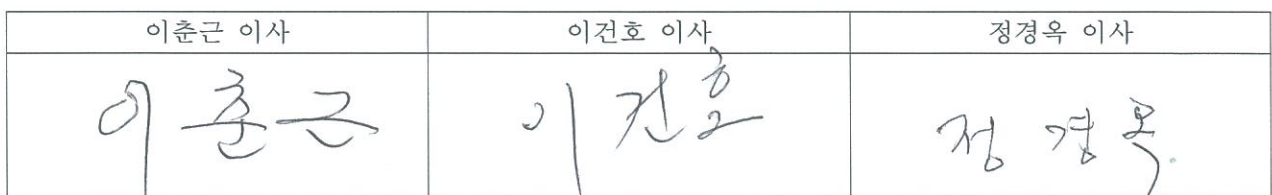 이춘근 이사 이건호 이사 정경옥 이사
이춘근 이건호 정경옥